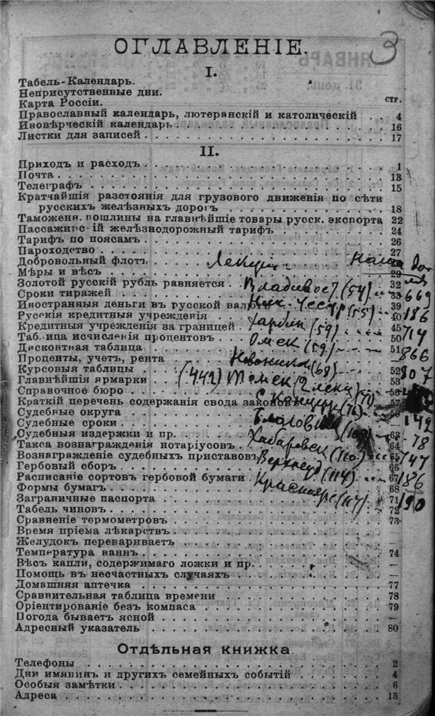 3
ОГЛАВЛЕНІЕ.
I.
Табель-Календарь.
Неприсутственные дни.
Карта Россіи.
СТР.
Православный календарь, лютеранскій и католическій 4
Иновѣрческій календарь 16
Листки для записей 17
II.
Приходъ и расходъ 1
Почта 13
Телеграфъ 15
Кратчайшія разстоянія для грузового движенія по сѣти
русскихъ желѣзныхъ дорогъ 18
Таможенн. пошлины на главнѣйшіе товары русск. экспорта 22
Пассажирскій желѣзнодорожный тарифъ 24
Тарифъ по поясамъ 26
Пароходство 27
Добровольный флотъ
Мѣры и вѣсъ 29
Золотой русскій рубль равняется 32
Владивост (54)
Сроки тиражей 33
669
Иностранныя деньги въ русской 39
186
Русскія кредитныя учрежденія 40
Харбин (59)
Кредитныя учрежденія за границей 45
714
Таблица исчисленія процентовъ 50
Омск (59)
Дисконтная таблица 51
866
Проценты, учетъ, рента 52
Курсовыя таблицы
907
Главнѣйшія ярмарки
(442) Томск
Справочное бюро
Краткій перечень содержанія свода
Судебные округа
142
Судебные сроки
78
Судебныя издержки и пр. 63
Такса вознагражденія нотаріусовъ 64
Хабаровск (110)
747
Вознагражденіе судебныхъ приставовъ
Гербовый сборъ 66
Верхнеуд (114)
186
Росписаніе сортовъ гербовой бумаги 67
Формы бумагъ 68
Красноярс (117)
190
Заграничные паспорта 71
Табель чиновъ 72
Сравненіе термометровъ 73
Время пріема лѣкарствъ
Желудокъ перевариваетъ
Температура ваннъ 74
Вѣсъ капли, содержимаго ложки и пр. —
Помощь въ несчастныхъ случаяхъ —
Домашняя аптечка 77
Сравнительная таблица времени 78
Оріентированіе безъ компаса 79
Погода бываетъ ясной —
Адресный указатель 80
Отдѣльная книжка
Телефоны 2
Дни имянин и другихъ семейныхъ событій 4
Особыя замѣтки 6
Адреса 13